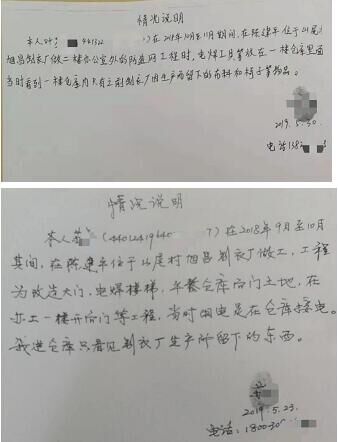 情况说明
本人 441322 )在2018年10月至11月期间,在陈建平位于山尾
旭昌制衣厂做二楼办公室外的防盗网工程时,电焊工具等放在一楼仓库里面
当时看到一楼仓库内只有之前制衣厂因生产而留下的布料和椅子等物品。
2019.5.30.
电话1382
情况说明
本人 (44012419640 7)在2018年9月至10月
其间,在陈建平位于山尾村旭昌制衣厂做工,工程
为改造大门,电焊楼梯,平整仓库后门土地,在
一楼开后门等工程,当时用电是在仓库接电。
我进仓库只看见制衣厂生产所留下的东西。
2019.5.23.
电话:180030